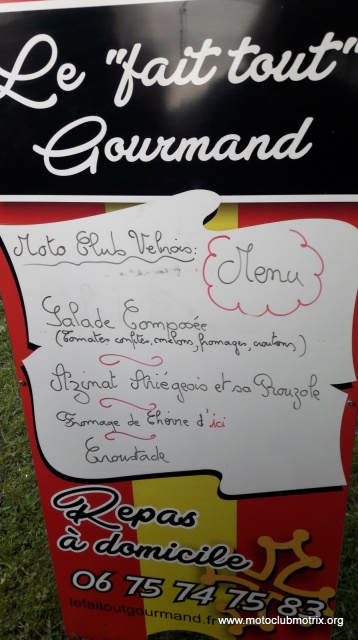 Le "fait tout"
Gourmand
Moto Club Velnois:
Menu
Salade Composée
(Tomates confites, melons, fromages, croutons)
Azinat Ariégeois et sa Rouzole
Fromage de Chèvre d'ici
Croustade
Repas
à domicile
06 75 74 75 83
lefaitoutgourmand.fr
www.motoclubmotrix.org